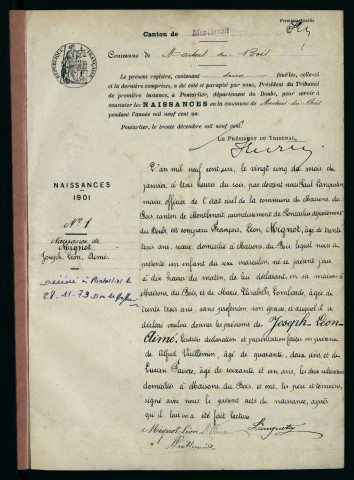 Première feuille
Canton de Montbenoit
RÉPUBLIQUE FRANÇAISE
Commune de Maisons du Bois
Le présent registre, contenant deux feuilles, celle-ci
et la dernière comprises, a été coté et paraphé par nous, Président du Tribunal
de première instance, à Pontarlier, département du Doubs, pour servir à
constater les NAISSANCES en la commune de Maisons-du-Bois
pendant l'année mil neuf cent un.
Pontarlier, le trente décembre mil neuf cent.
LE PRÉSIDENT DU TRIBUNAL,
NAISSANCES
1901
N° 1
Naissance de
Mignot
Joseph, Léon, Aimé.
décédé à Pontarlier le
28.11.79
L'an mil neuf cent un, le vingt cinq du mois de
janvier, à trois heures du soir, par devant nous Paul Languetin
maire officier de l'état civil de la commune de Maisons du
Bois, canton de Montbenoit, arrondissement de Pontarlier, département
du Doubs, est comparu François, Léon, Mignot, âgé de trente
trois ans, domicilié à Maisons du Bois, lequel nous a
présenté un enfant du sexe masculin, né ce présent jour
à dix heures du matin, de lui déclarant, en sa maison à
Maisons du Bois, et de Marie Elisabeth Lombarde, âgée de
trente trois ans, sans profession, son épouse, et auquel il a
déclaré vouloir donner les prénoms de Joseph-Léon-
Aimé. Lesdites déclaration et présentation faites en présence
de Alfred Vuillemin, âgé de quarante deux ans et de
Lucien Faivre, âgé de soixante et un ans, les deux cultivateurs
domiciliés à Maisons du Bois, et ont, les père et témoins,
signé avec nous le présent acte de naissance, après
qu'il leur en a été fait lecture.
Mignot Léon L. Faivre Languetin
Vuillemin